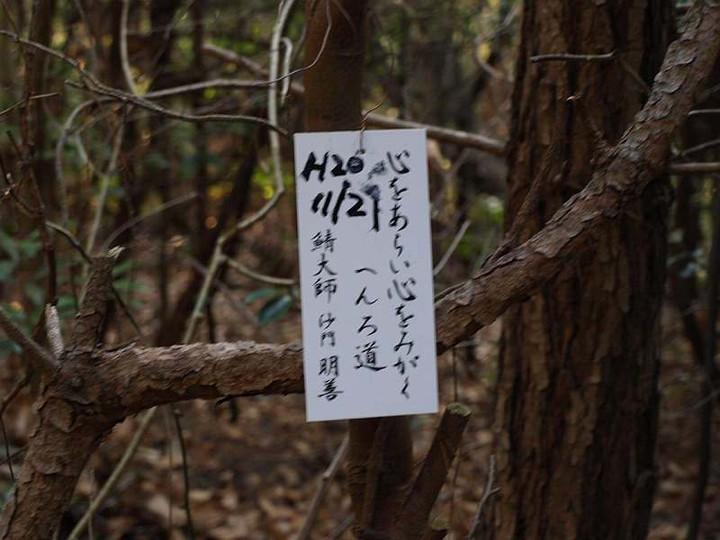 心をあらい心をみがく
へんろ道
H20
11/21
鯖大師 沙門 明善